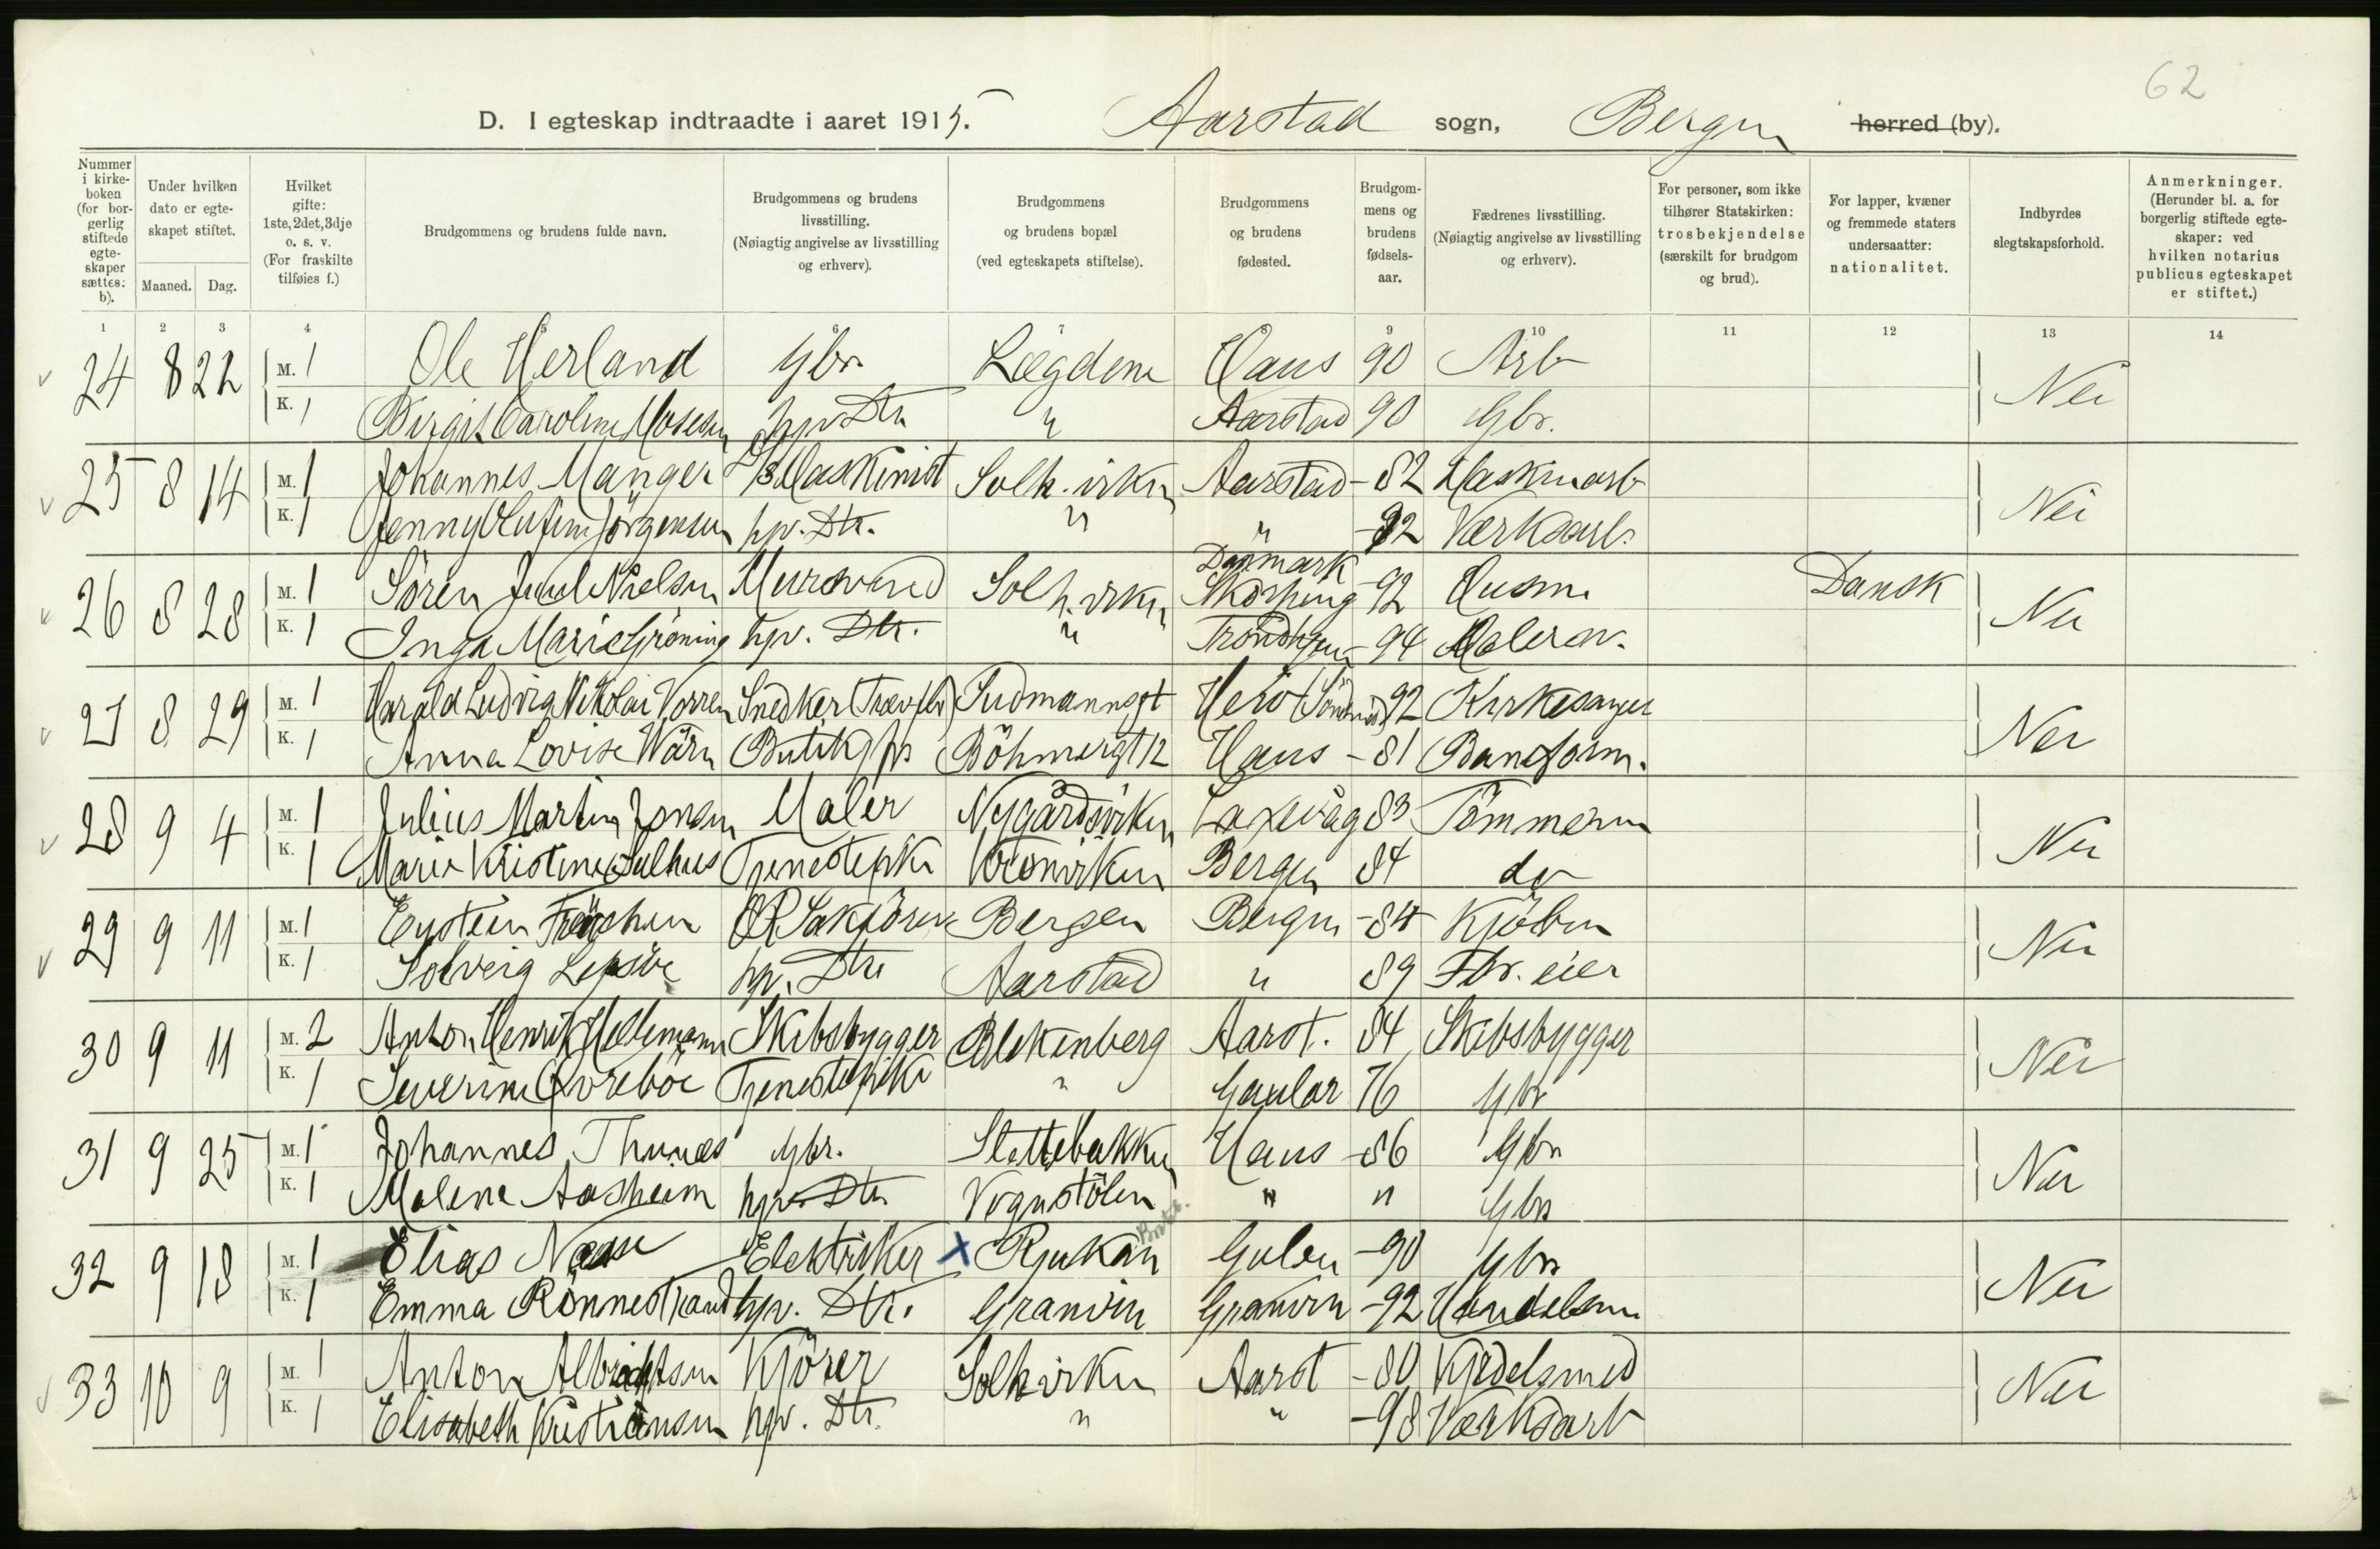 62
D. I egteskap indtraadte i aaret 1915. Aarstad sogn, Bergen herred (by).
Nummer i kirkeboken (for borgerlig stiftede egteskaper sættes: b).
Under hvilken dato er egteskapet stiftet.
Maaned. Dag.
Hvilket gifte: 1ste, 2det, 3dje o. s. v. (For fraskilte tilføies f.)
Brudgommens og brudens fulde navn.
Brudgommens og brudens livsstilling. (Nøiagtig angivelse av livsstilling og erhverv).
Brudgommens og brudens bopæl (ved egteskapets stiftelse).
Brudgommens og brudens fødested.
Brudgommens og brudens fødselsaar.
Fædrenes livsstilling. (Nøiagtig angivelse av livsstilling og erhverv).
For personer, som ikke tilhører Statskirken: trosbekjendelse (særskilt for brudgom og brud).
For lapper, kvæner og fremmede staters undersaatter: nationalitet.
Indbyrdes slegtskapsforhold.
Anmerkninger. (Herunder bl. a. for borgerlig stiftede egteskaper: ved hvilken notarius publicus egteskapet er stiftet.)
1 2 3 4 5 6 7 8 9 10 11 12 13 14
24 8 22 M. 1 Ole Herland Gbr. Lægdene Haus 90 Arb Nei
K. 1 Birgit Caroline Mosesen hpv Dtr " Aarstad 90 Gbr.
25 8 14 M. 1 Johannes Manger Maskinist Solh.virken Aarstad -82 Maskinarb Nei
K. 1 Jenny Olufine Jörgensen hpv. Dtr. " " -92 Værksarb.
26 8 28 M. 1 Sören Juul Nielsen Murersvend Solh.virken Danmark Skörping -92 Husm. Dansk Nei
K. 1 Inga Marie Gröning hpv. Dtr. " Trondhjem -94 Malersv.
27 8 29 M. 1 Harald Ludvig Nikolai Vorren Snedker (Trævfbr) Sudmannsgt Herö (Söndm) 92 Kirkesanger Nei
K. 1 Anna Lovise Wärn Butikjfr Böhmergt 12 Haus -81 Baneform.
28 9 4 M. 1 Julius Martin Jonsen Maler Nygårdsviken Laxevåg 83 Tömmerm Nei
K. 1 Marie Kristine Salhus Tjenestepike Kronviken Bergen 84 do
29 9 11 M. 1 Eystein OR Sakförer Bergen Bergen -84 Kjöbm Nei
K. 1 Solveig Lepsöe hpv. Dtr Aarstad " 89 Fbr. eier
30 9 11 M. 2 Anton Henrik Hellemann Skibsbygger Blekenberg Aarst. 84 Skibsbygger Nei
K. 1 Severine Övreböe Tjenestepike " Gaular 76 Gbr
31 9 25 M. 1 Johannes Thunes Gbr. Slettebakken Haus -86 Gbr Nei
K. 1 Malene Aasheim hpv. Dtr Vognstölen " " Gbr
32 9 18 M. 1 Elias Næsse Elektriker x Rjukan Gulen -90 Gbr Nei
K. 1 Emma Rönnestrand hpv. Dtr. Granvin Granvin -92 Handelsm
33 10 9 M. 1 Anton Albrichtsen Kjörer Solhviken Aarst -80 Kjedelsmed Nei
K. 1 Elisabeth Kristiansen hpv. Dtr. " " -98 Værksarb